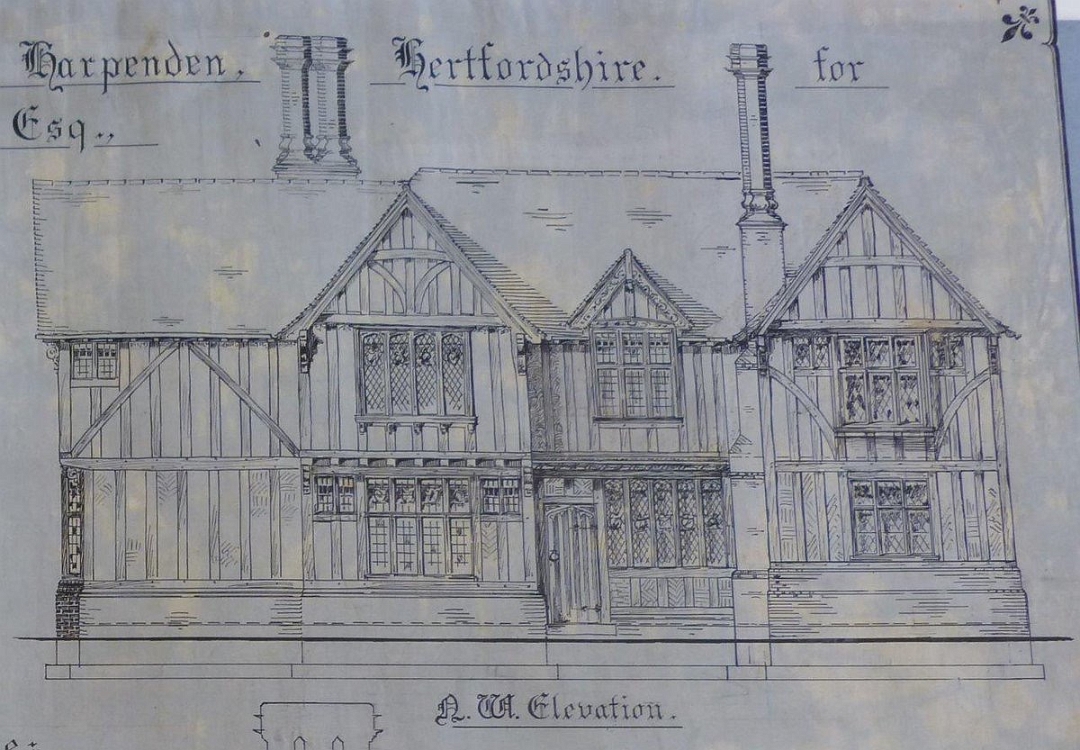 Harpenden, Hertfordshire. for
Esq.,
N. W. Elevation.